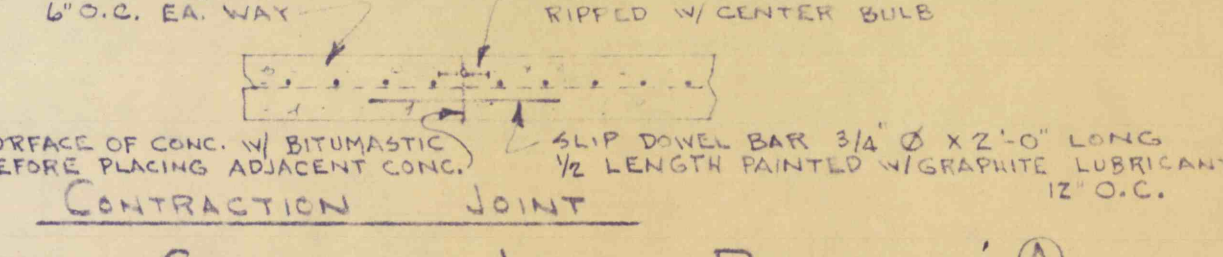 6" O.C. EA. WAY
RIPPED W/ CENTER BULB
ORFACE OF CONC. W/ BITUMASTIC
EFORE PLACING ADJACENT CONC.
SLIP DOWEL BAR 3/4" Ø X 2'-0" LONG
1/2 LENGTH PAINTED W/ GRAPHITE LUBRICANT
12" O.C.
CONTRACTION JOINT
A